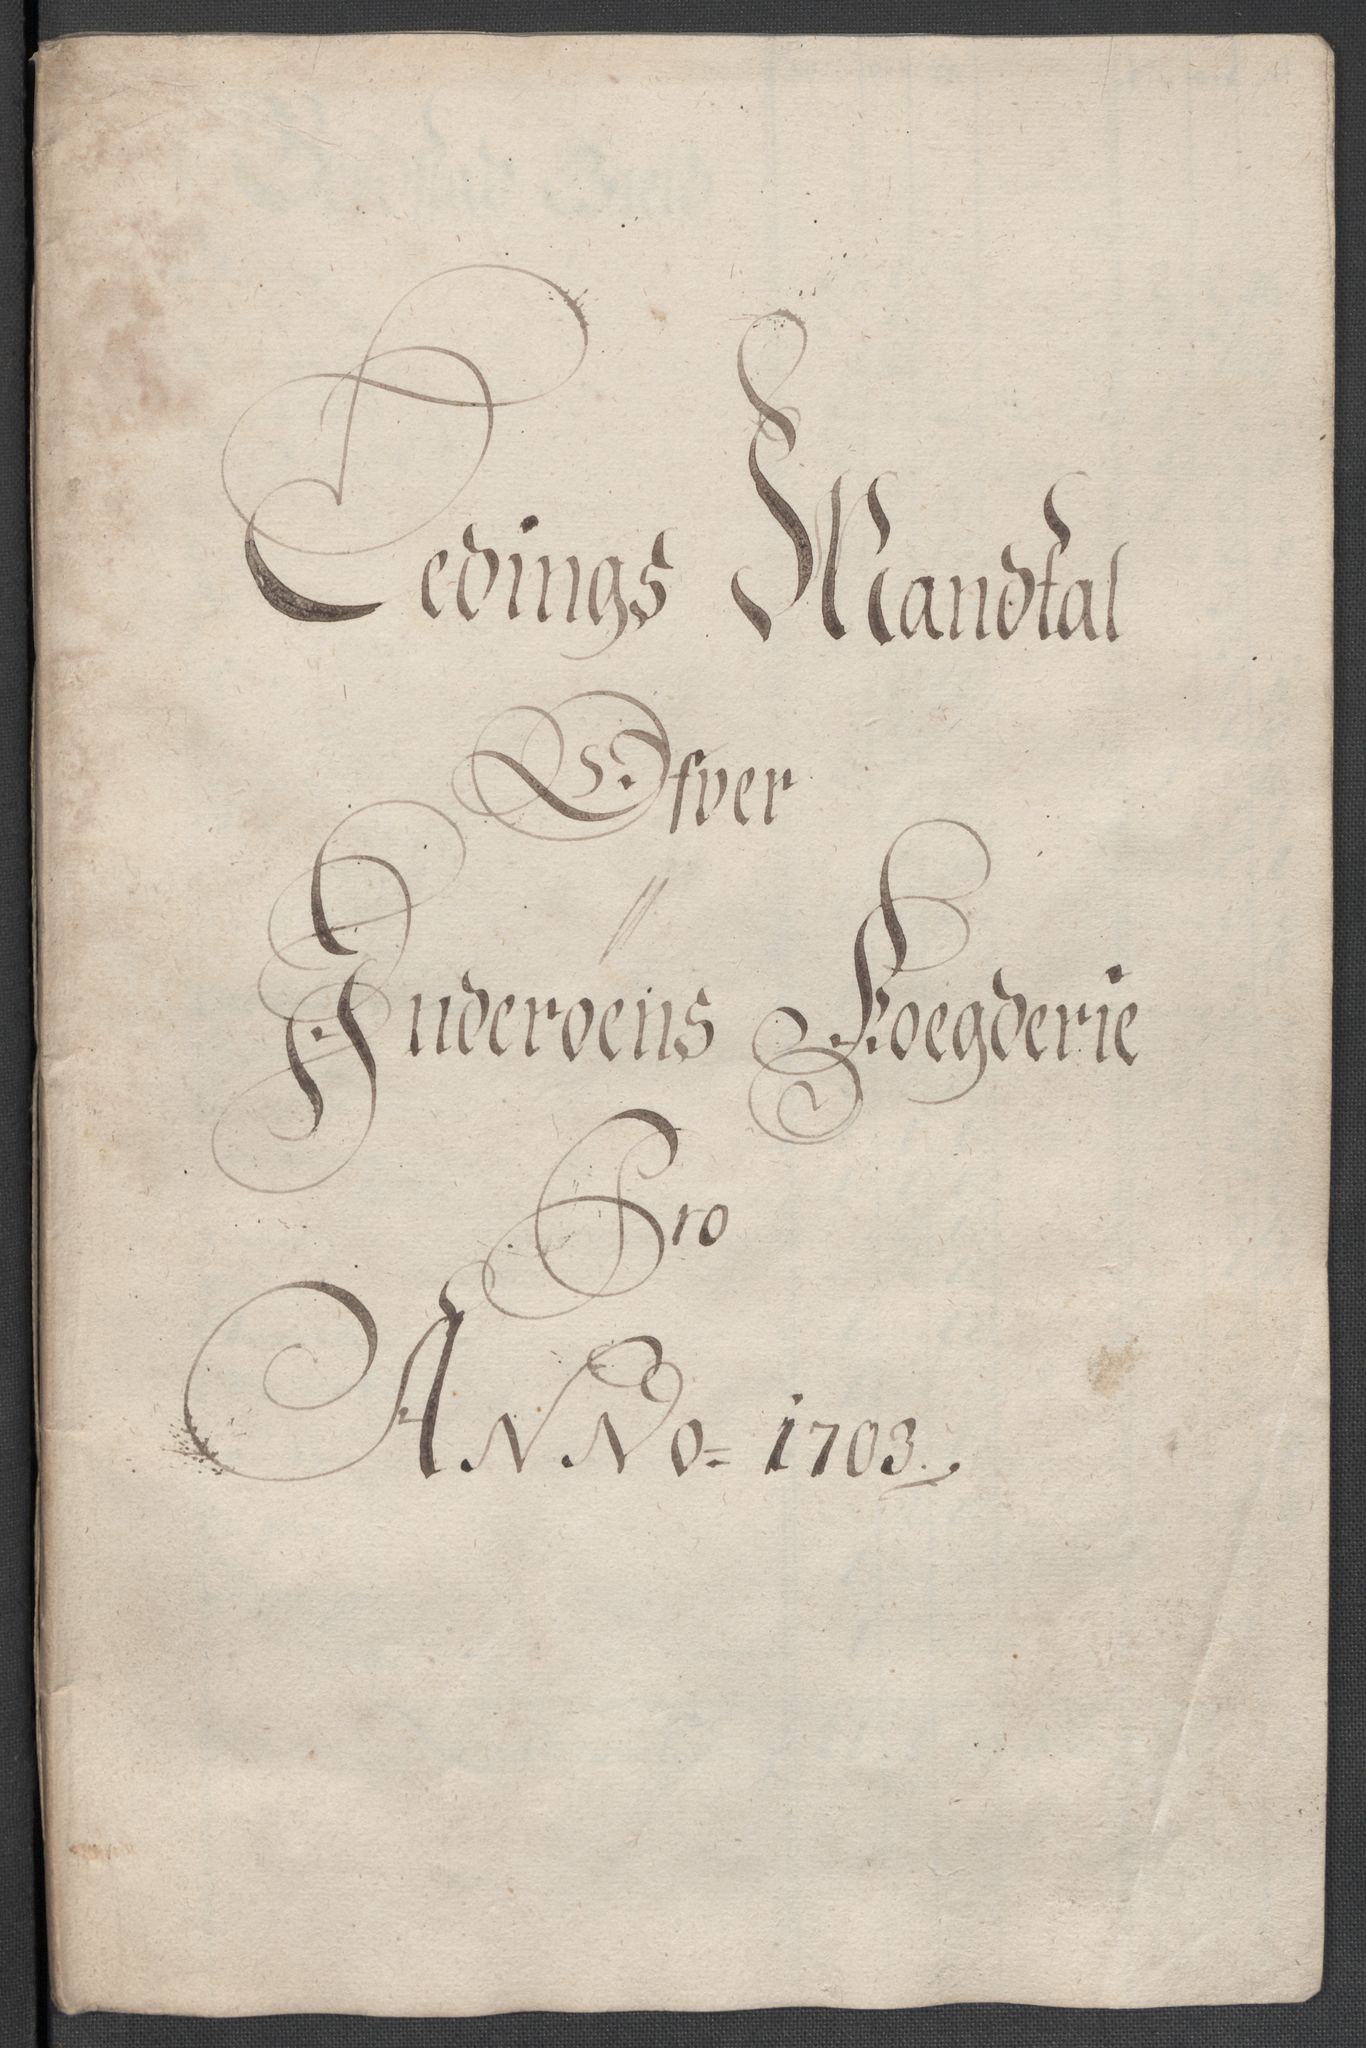 Ledings Mandtal
Ofver
Inderoens Foegderie
Pro
ANNo= 1703.